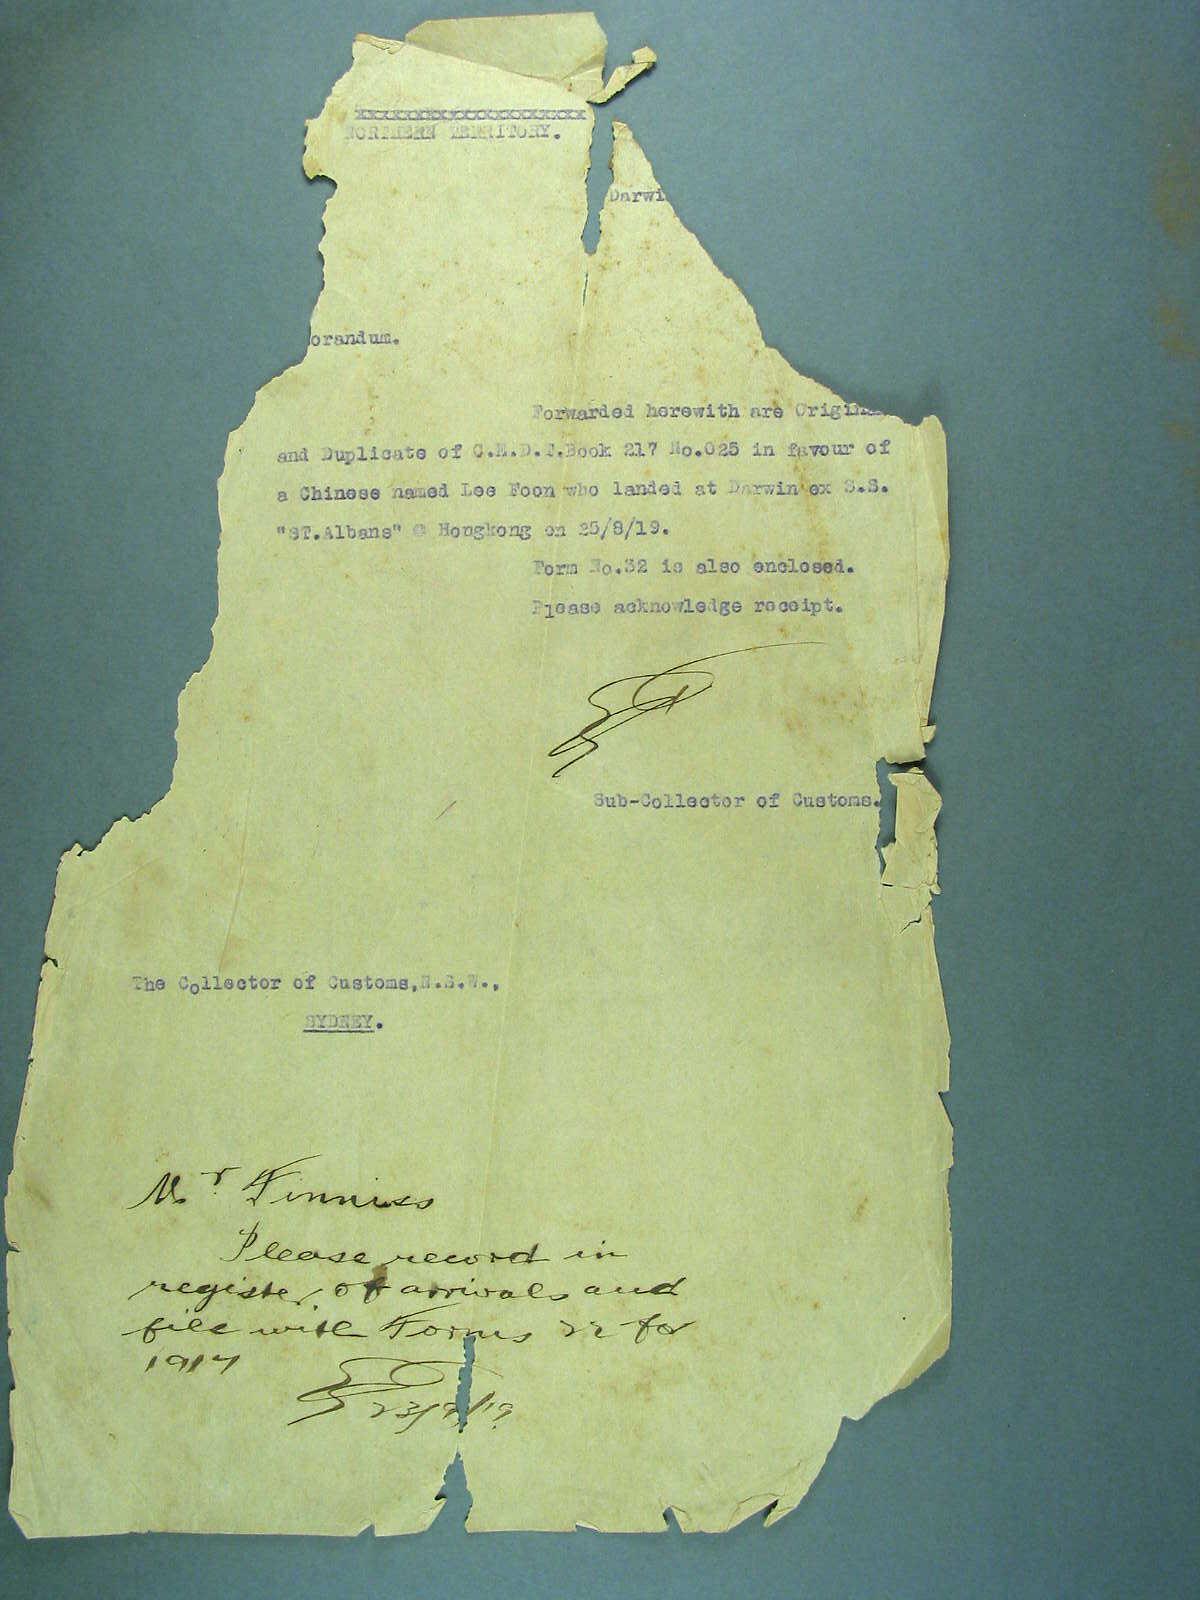 xxxxxxxxxxxxxxxxxxxx
NORTHERN TERRITORY.
Darwi
orandum.
Forwarded herewith are Origina
and Duplicate of C.E.D.T.Book 217 No.025 in favour of
a Chinese named Lee Foon who landed at Darwin ex S.S.
"ST.Albans" @ Hongkong on 25/8/19.
Form No.32 is also enclosed.
Please acknowledge receipt.
Sub-Collector of Customs.
The Collector of Customs,N.S.W.,
SYDNEY.
Mr. Finniss
Please record in
register of arrivals and
file with Forms 22 for
1917
23/9/19